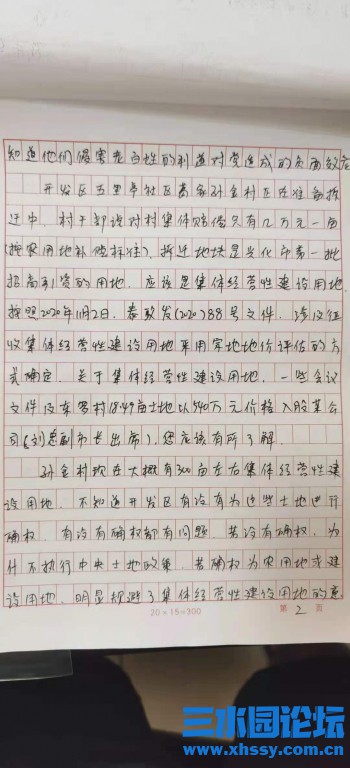 知道他们侵害老百姓的利益对党造成的负面效应
开发区五里亭社区葛家孙金村正在准备拆
迁中，村干部说对村集体赔偿只有几万元一亩
(按农用地补偿标准)，拆迁地块是兴化市第一批
招商引资的用地，应该是集体经营性建设用地，
按照2020年11月2日，泰政发(2020)88号文件，涉及征
收集体经营性建设用地采用宗地地价评估的方
式确定，关于集体经营性建设用地，一些会议
文件及东罗村18.49亩土地以540万元价格入股某公
司(刘总副市长出席)，您应该有所了解，
孙金村现在大概有300亩左右集体经营性建
设用地，不知道开发区有没有为这些土地进行
确权，有没有确权都有问题，若没有确权，为
什不执行中央土地政策，若确权为农用地或建
设用地，明显规避了集体经营性建设用地的意
20×15=300
第 2 页
三水园论坛
www.xhssy.com.cn